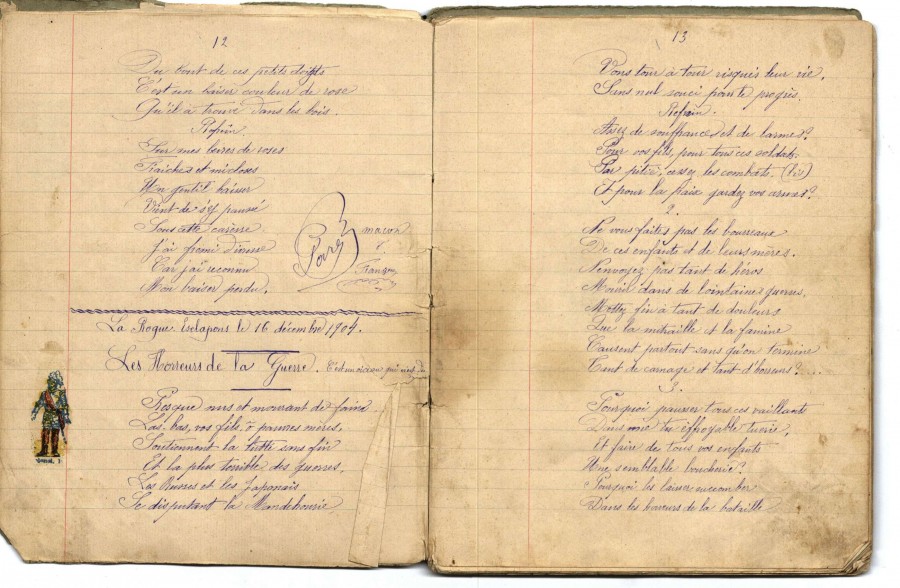 12
Du bout de ces petits doigts
C'est un baiser couleur de rose
Qu'il a trouvé dans les bois.
Refrain.
Sur mes levres de roses
Fraiches et micloses
Un gentil baiser
Vient de s'y pausé
Sous cette caresse
J'ai fremi d'ivresse
Car j'ai reconnu
Mon baiser perdu.
maçon
à
La Roque Esclapons le 16 décembre 1904.
Les Horreurs de la Guerre. C'est un oiseau qui vient de
Presque nus et mourant de faim
Las, bas, vos fils, ô pauvres mères,
Soutiennent la lutte sans fin
Et la plus terrible des guerres,
Les Russes et les Japonais
Se disputant la Mandchourie
13
Vons tour à tour risquer leur vie,
Sans nul souci pour le progrès.
Refrain.
Assez de souffrances et de larmes?
Pour vos fils, pour tous ces soldats.
Par pitié, cessez les combats. (bis)
Et pour la paix gardez vos armes?
2.
Ne vous faites pas les bourreaux
De ces enfants et de leurs mères.
N'envoyez pas tant de héros
Mourir dans de lointaines guerres.
Mettez fin à tant de douleurs
Que la mitraille et la famine
Causent partout sans qu'on termine
Tant de carnage et tant d'horreurs?
3.
Pourquoi pausser tous ces vaillants
Dans une tu effroyable tuerie,
Et faire de tous vos enfants
Une semblable boucherie?
Pourquoi les laisser succomber
Dans les horreurs de la bataille